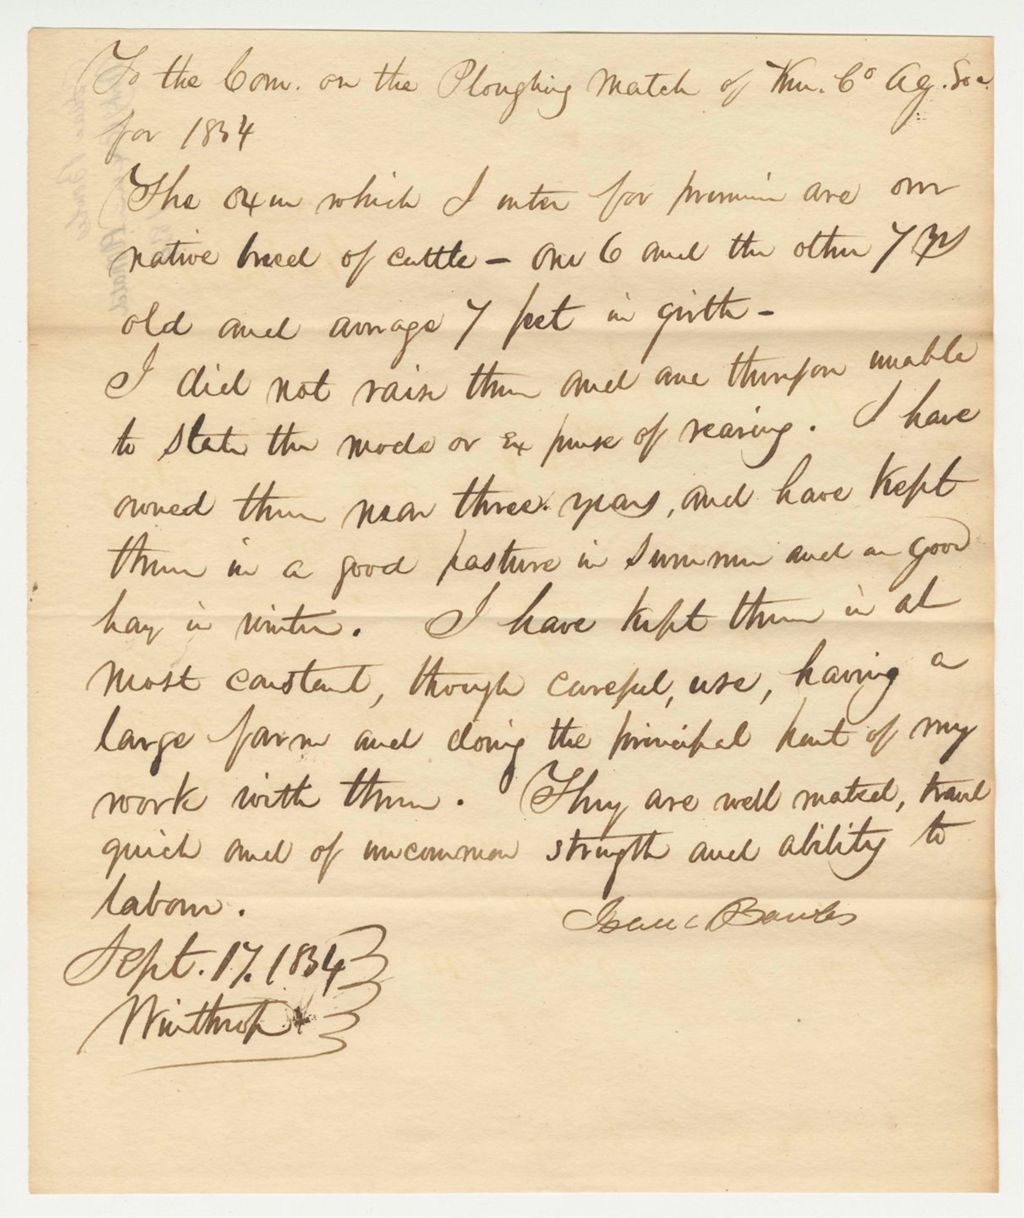 To the Com. on the Ploughing Match of Ken. Co Ag. Soc.
for 1834
The oxen which I enter for premium are our
native breed of cattle – one 6 and the other 7 yrs
old and average 7 feet in girth –
I did not raise them and am therefore unable
to state the mode or expense of rearing. I have
owned them near three years, and have kept
them in a good pasture in summer and on good
hay in winter. I have kept them in al
most constant, though careful, use, having a
large farm and doing the principal part of my
work with them. They are well matched, travel
quick and of uncommon strength and ability to
labour.
Isaac Bowles
Sept. 17. 1834
Winthrop